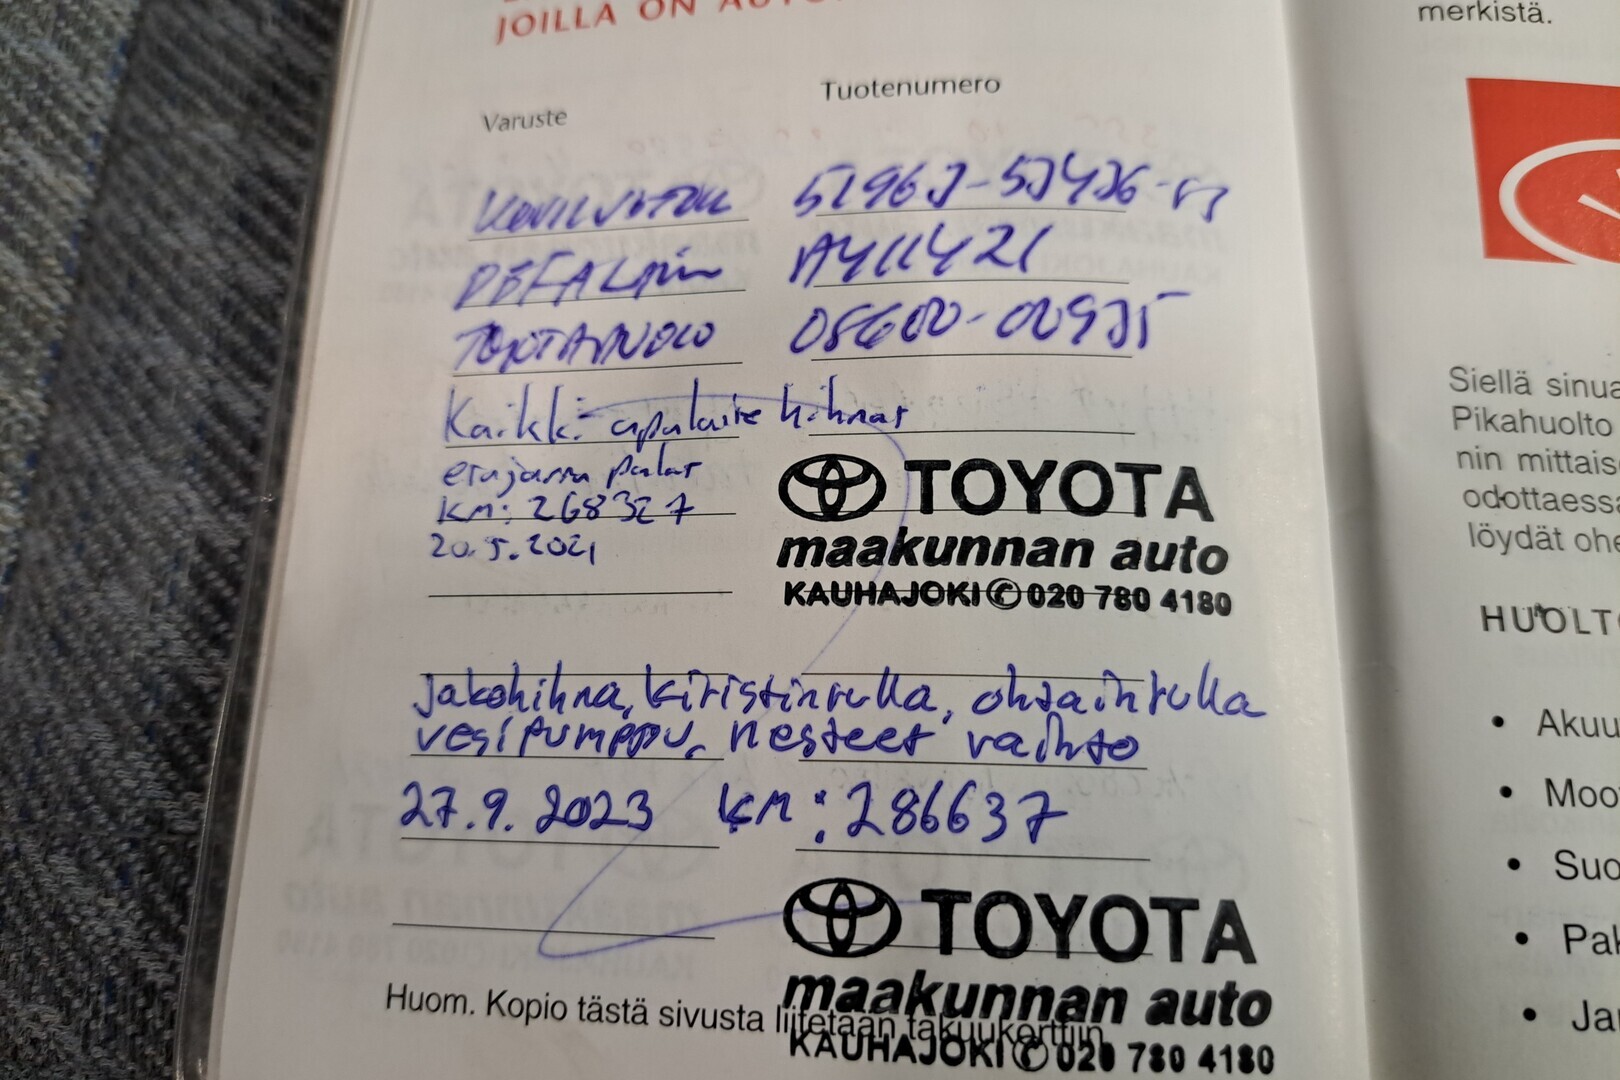 JOILLA ON
merkistä.
Varuste
Tuotenumero
DEFA
A411421
08600-00935
Kaikki apulaite hihnat
etujarru palat
km: 268327
20.5.2021
TOYOTA
maakunnan auto
KAUHAJOKI ✆ 020 780 4180
jakohihna, kiristinrulla, ohjainrulla
vesipumppu, nesteet vaihto
27.9.2023 km: 286637
TOYOTA
maakunnan auto
KAUHAJOKI ✆ 020 780 4180
Huom. Kopio tästä sivusta liitetään takuukorttiin
Siellä sinua
Pikahuolto
nin mittais
odottaessa
löydät ohe
HUOLTO
• Akuu
• Moo
• Suo
• Pak
• Jar